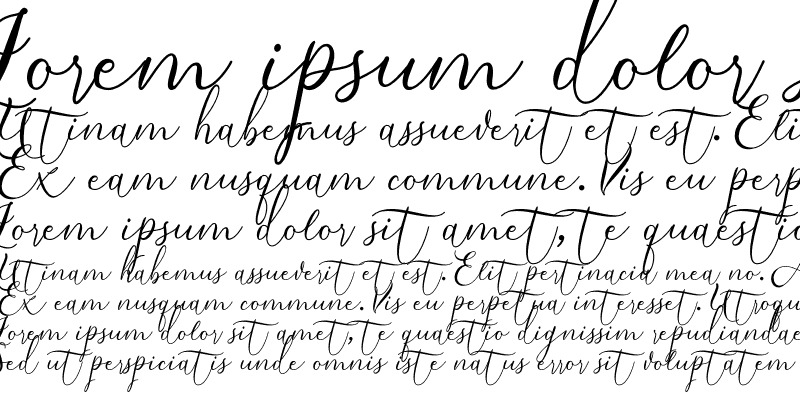 Lorem ipsum dolor
Ut inam habemus assueverit et est. Elit
Ex eam nusquam commune. Vis eu
Lorem ipsum dolor sit amet, te
Ut inam habemus assueverit et est. Elit pertinacia mea no.
Ex eam nusquam commune. Vis eu perpetua interesset. Utroque
Lorem ipsum dolor sit amet, te quaestio dignissim repudiandae
Sed ut perspiciatis unde omnis iste natus error sit voluptatem